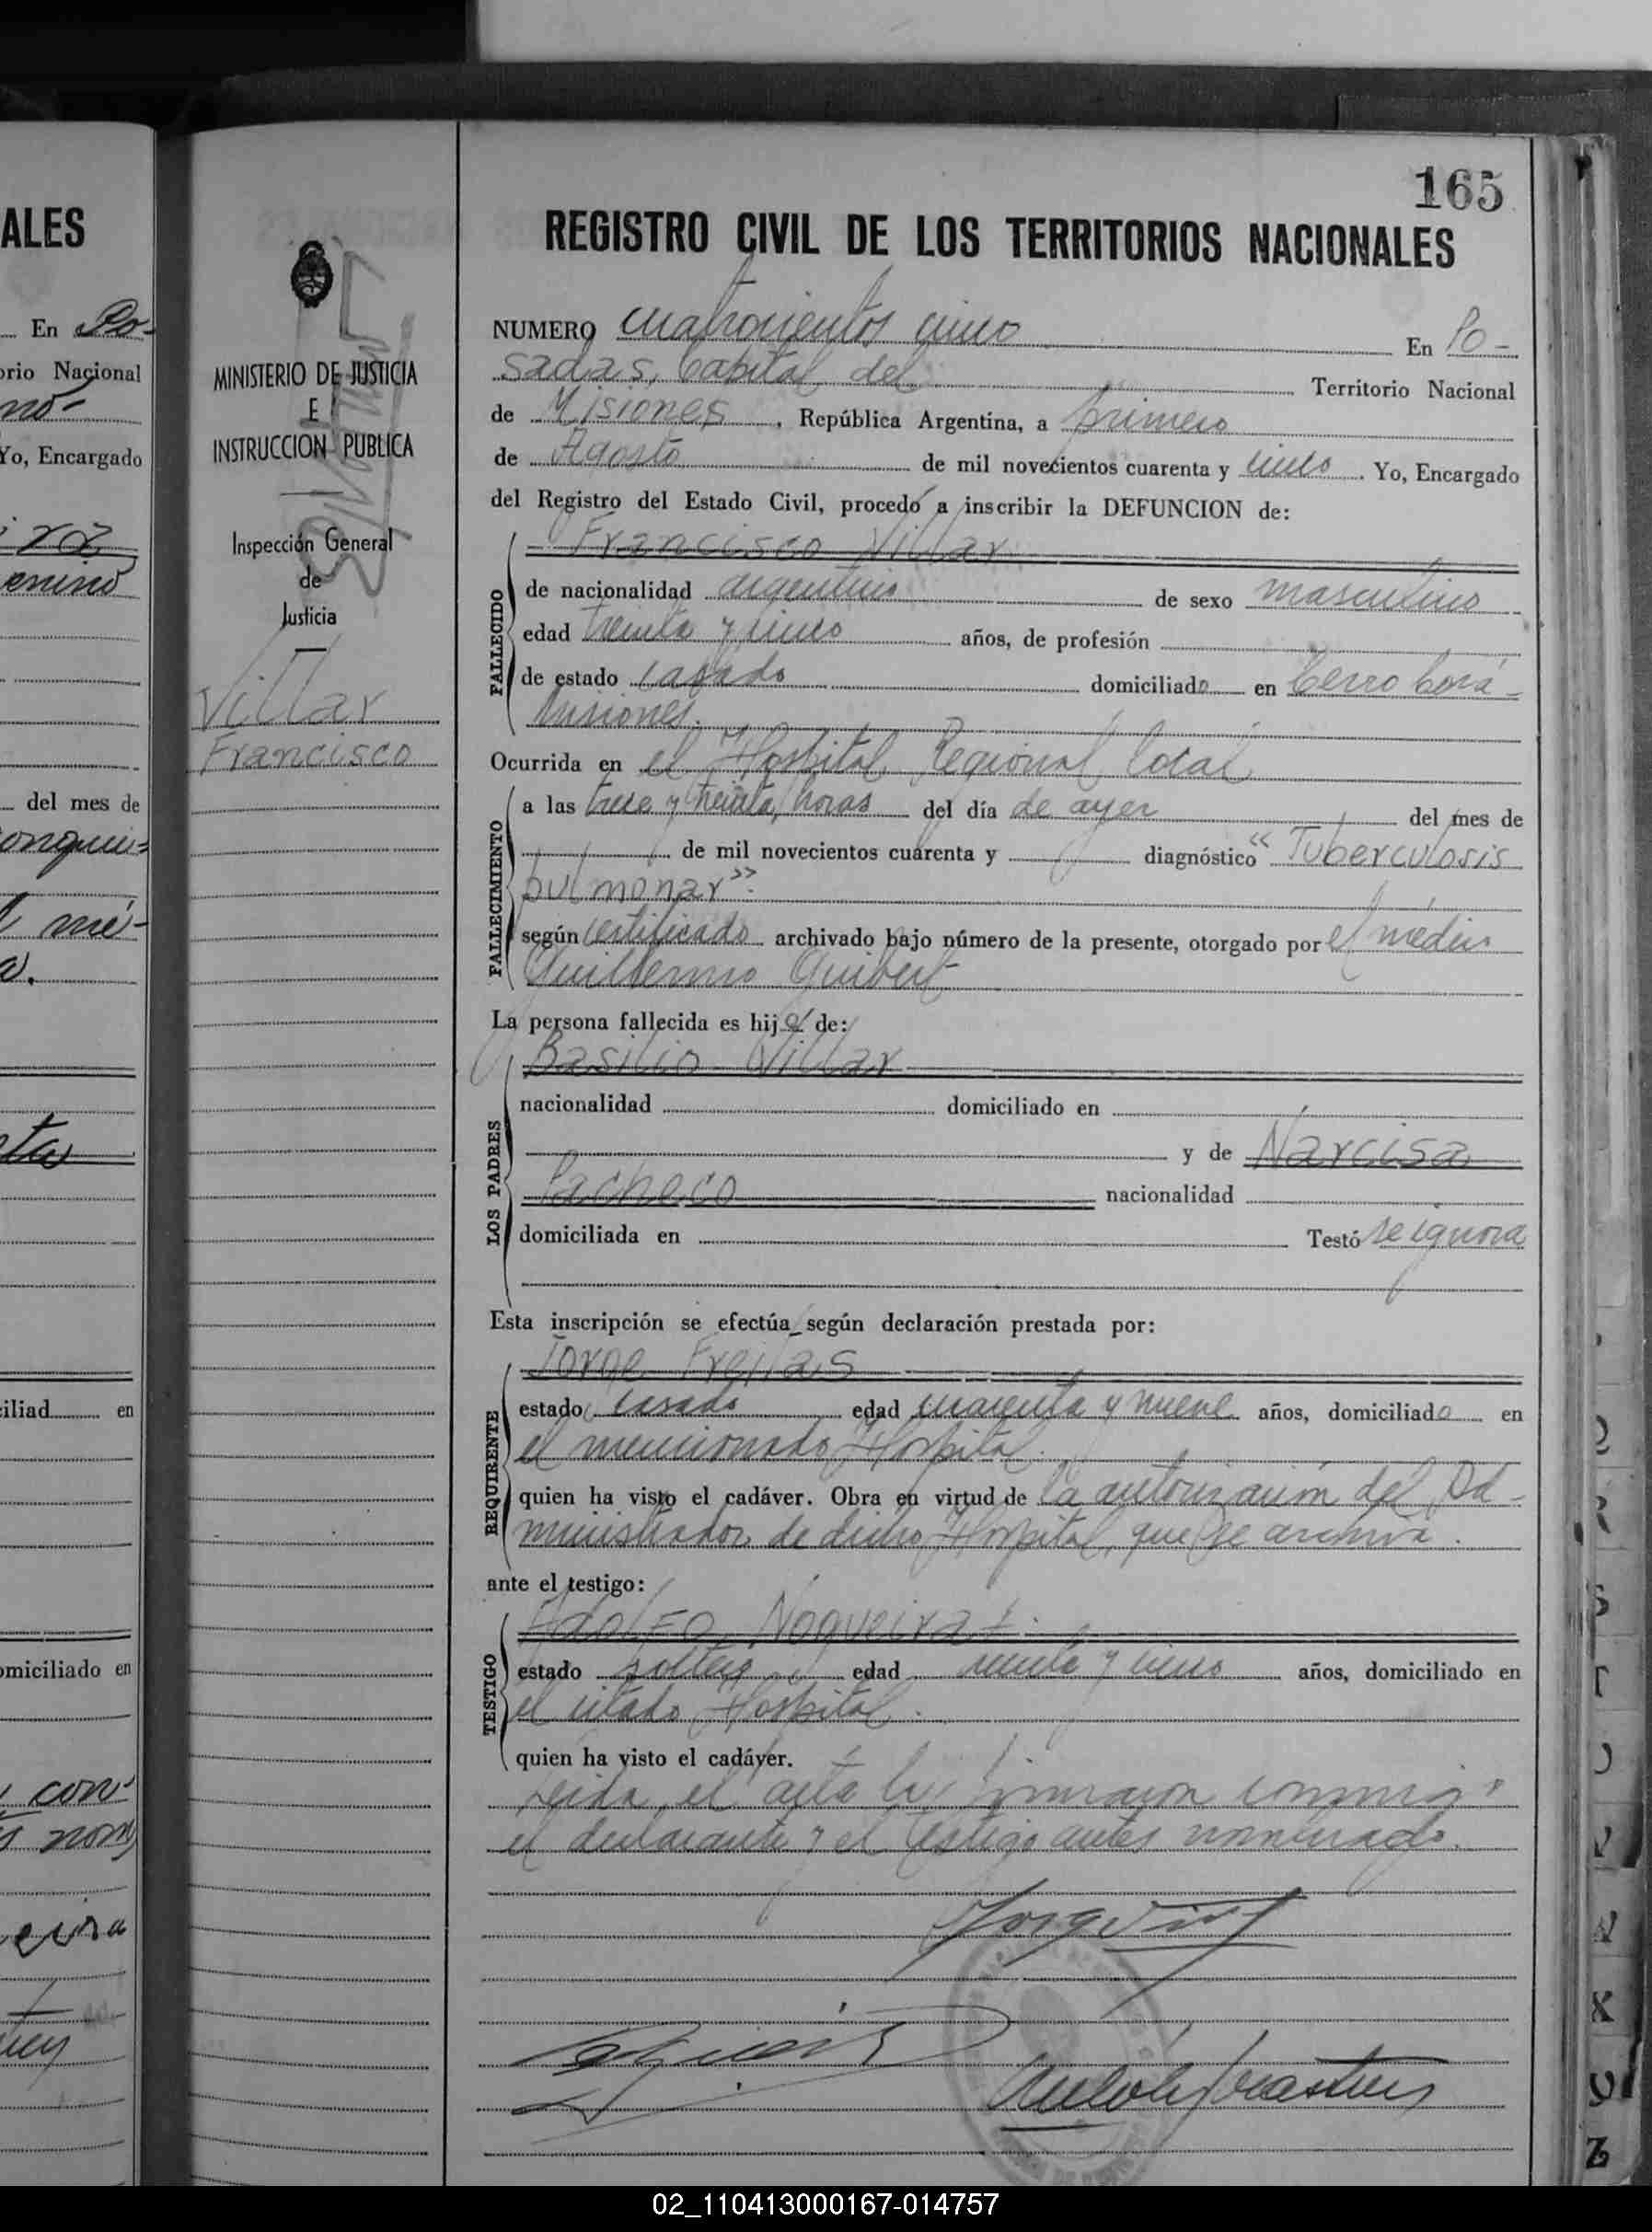 165
REGISTRO CIVIL DE LOS TERRITORIOS NACIONALES
NUMERO cuatrocientos cinco En Po-
sadas, Capital del Territorio Nacional
de Misiones, República Argentina, a primero
de Agosto de mil novecientos cuarenta y cinco. Yo, Encargado
del Registro del Estado Civil, procedo a inscribir la DEFUNCION de:
Francisco Villar
FALLECIDO
de nacionalidad argentino de sexo masculino
edad treinta y cinco años, de profesión
de estado casado domiciliado en Cerro Corá-
Misiones.
Ocurrida en el Hospital Regional local
FALLECIMIENTO
a las trece y treinta horas del día de ayer del mes de
de mil novecientos cuarenta y diagnóstico "Tuberculosis
pulmonar".
según certificado archivado bajo número de la presente, otorgado por el médico
Guillermo Guibert
La persona fallecida es hijo de:
LOS PADRES
Basilio Villar
nacionalidad domiciliado en
y de Narcisa
Pacheco nacionalidad
domiciliada en Testó se ignora
Esta inscripción se efectúa según declaración prestada por:
REQUIRENTE
Jorge Freitas
estado casado edad cuarenta y nueve años, domiciliado en
el mencionado Hospital.
quien ha visto el cadáver. Obra en virtud de la autorización del Ad-
ministrador de dicho Hospital, que se archiva.
ante el testigo:
TESTIGO
Adolfo Nogueira
estado soltero edad y cinco años, domiciliado en
el citado Hospital.
quien ha visto el cadáver.
Leida el acta la firmaron conmigo
el declarante y el testigo antes nombrado.
MINISTERIO DE JUSTICIA
E
INSTRUCCION PUBLICA
Inspección General
de
Justicia
Villar
Francisco
ALES
En Po-
orio Nacional
Yo, Encargado
del mes de
iliad en
omiciliado en
02_110413000167-014757